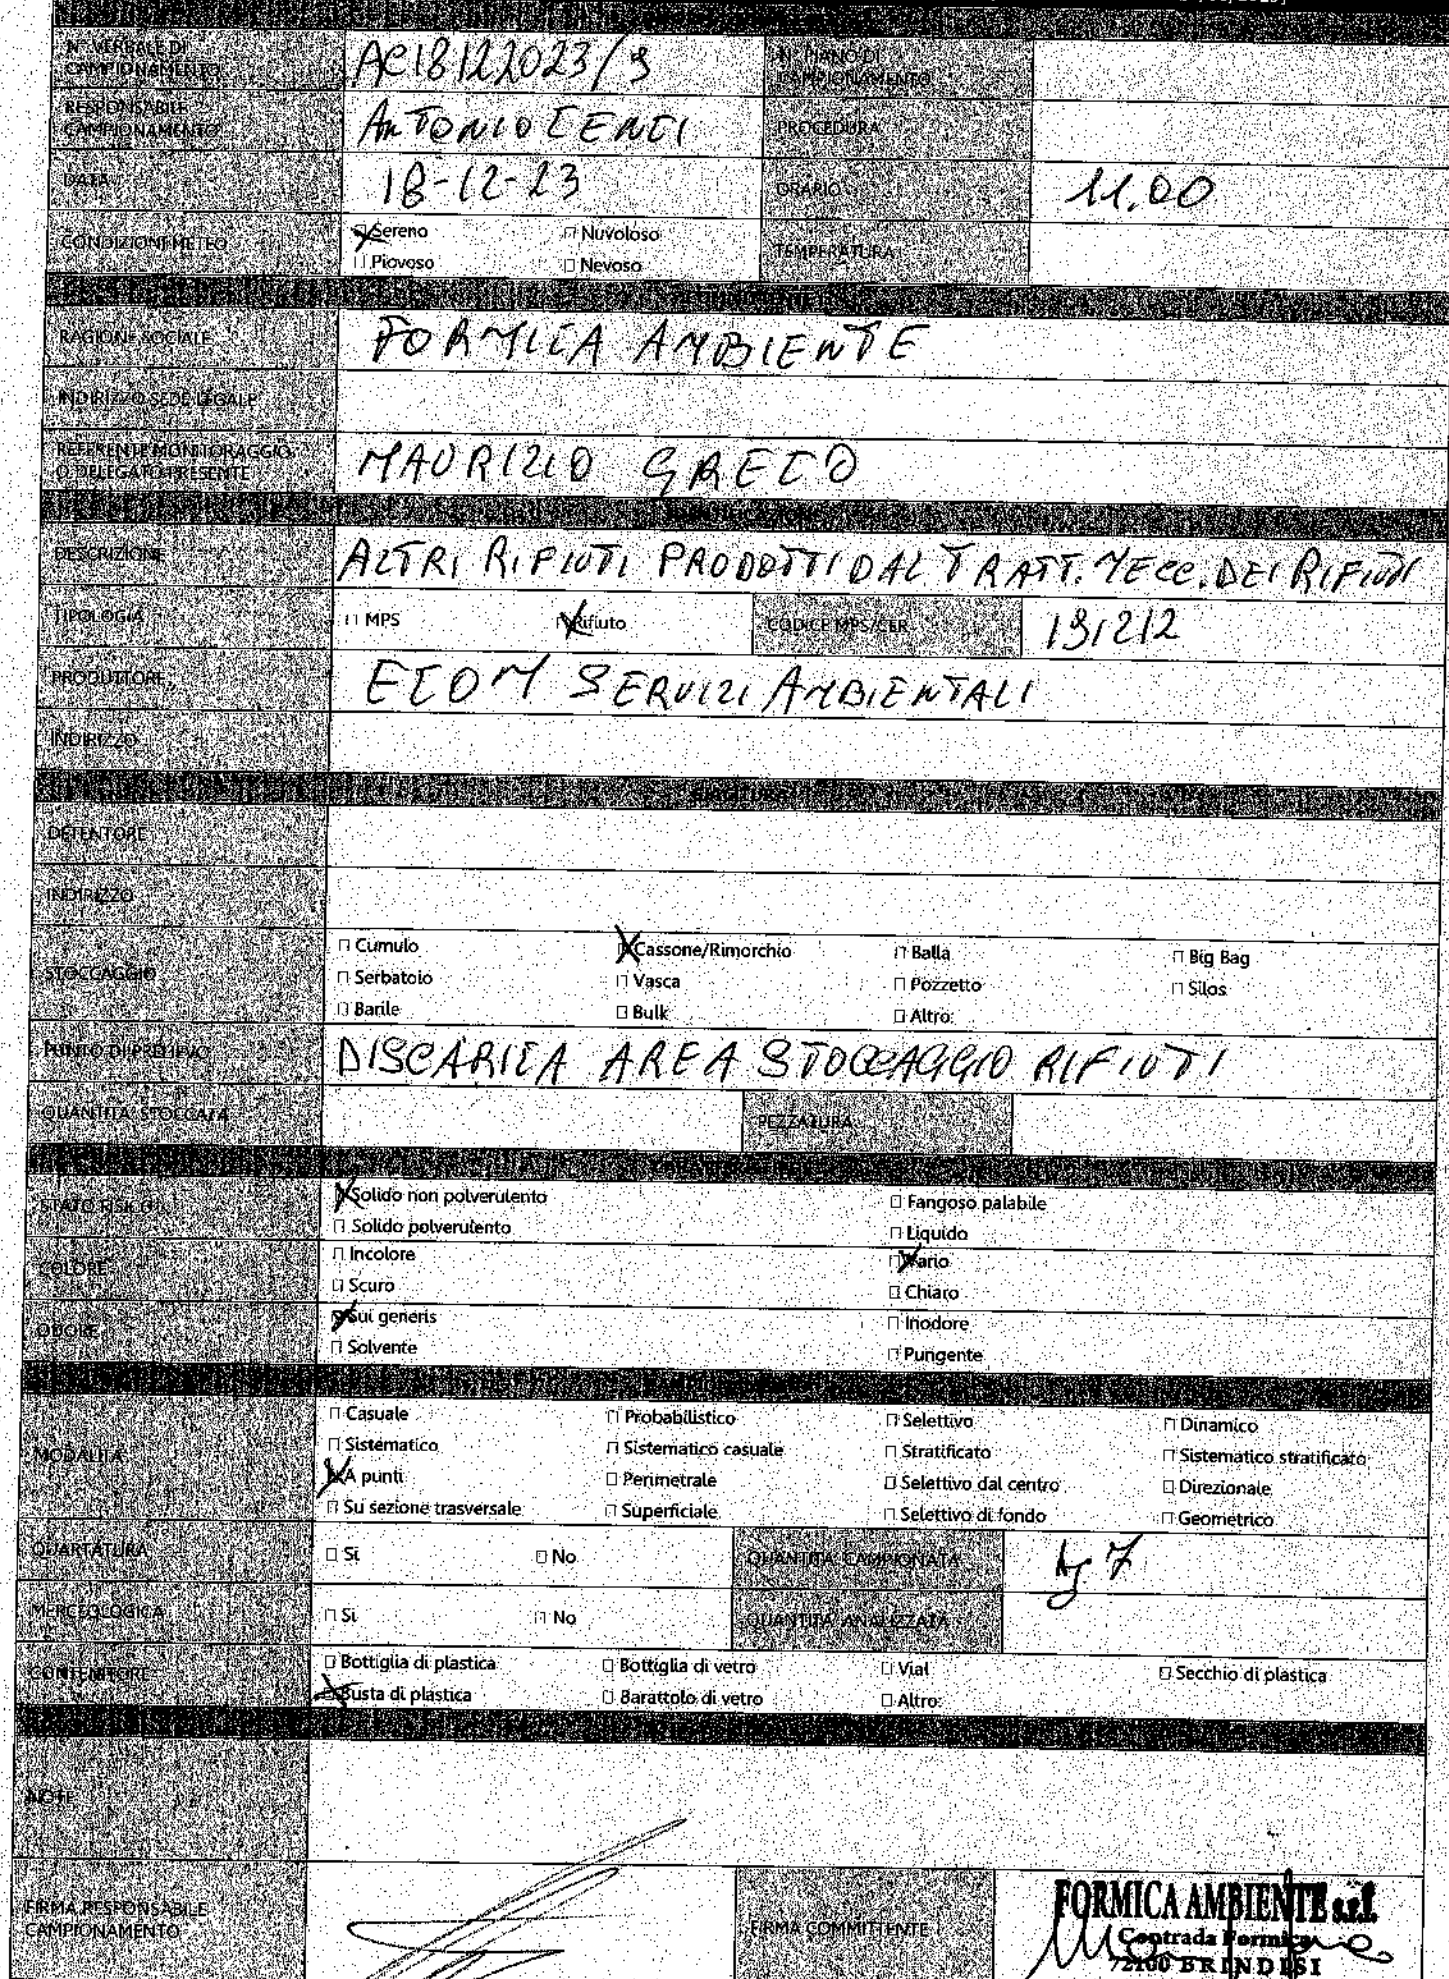 N° VERBALE DI CAMPIONAMENTO AC18122023/9 N° PIANO DI CAMPIONAMENTO
RESPONSABILE CAMPIONAMENTO ANTONIO CENCI PROCEDURA
DATA 18-12-23 ORARIO 11.00
CONDIZIONI METEO Sereno Nuvoloso TEMPERATURA
Piovoso Nevoso
RAGIONE SOCIALE FORMICA AMBIENTE
INDIRIZZO SEDE LEGALE
REFERENTE MONITORAGGIO O DELEGATO PRESENTE MAURIZIO GRECO
DESCRIZIONE ALTRI RIFIUTI PRODOTTI DAL TRATT. MECC. DEI RIFIUTI
TIPOLOGIA MPS Rifiuto CODICE MPS/CER 191212
PRODUTTORE ECOM SERVIZI AMBIENTALI
INDIRIZZO
DETENTORE
INDIRIZZO
STOCCAGGIO
Cumulo Cassone/Rimorchio Balla Big Bag
Serbatoio Vasca Pozzetto Silos
Barile Bulk Altro:
PUNTO DI PRELIEVO DISCARICA AREA STOCCAGGIO RIFIUTI
QUANTITÀ STOCCATA PEZZATURA
STATO FISICO Solido non polverulento Fangoso palabile
Solido polverulento Liquido
COLORE Incolore Vario
Scuro Chiaro
ODORE Sui generis Inodore
Solvente Pungente
MODALITÀ
Casuale Probabilistico Selettivo Dinamico
Sistematico Sistematico casuale Stratificato Sistematico stratificato
A punti Perimetrale Selettivo dal centro Direzionale
Su sezione trasversale Superficiale Selettivo di fondo Geometrico
QUARTATURA Si No QUANTITÀ CAMPIONATA kg 7
MERCEOLOGICA Si No QUANTITÀ ANALIZZATA
CONTENITORE Bottiglia di plastica Bottiglia di vetro Vial Secchio di plastica
Busta di plastica Barattolo di vetro Altro:
NOTE
FIRMA RESPONSABILE CAMPIONAMENTO FIRMA COMMITTENTE
FORMICA AMBIENTE s.r.l.
Contrada Formica
72100 BRINDISI